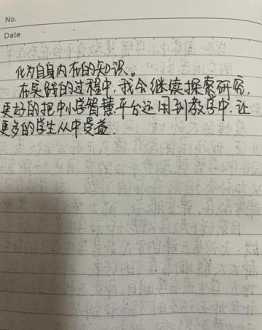 No.
Date
化为自身内在的知识。
在实践的过程中，我会继续探索研究，
更好的把中小学智慧平台运用到教学中，让
更多的学生从中受益.